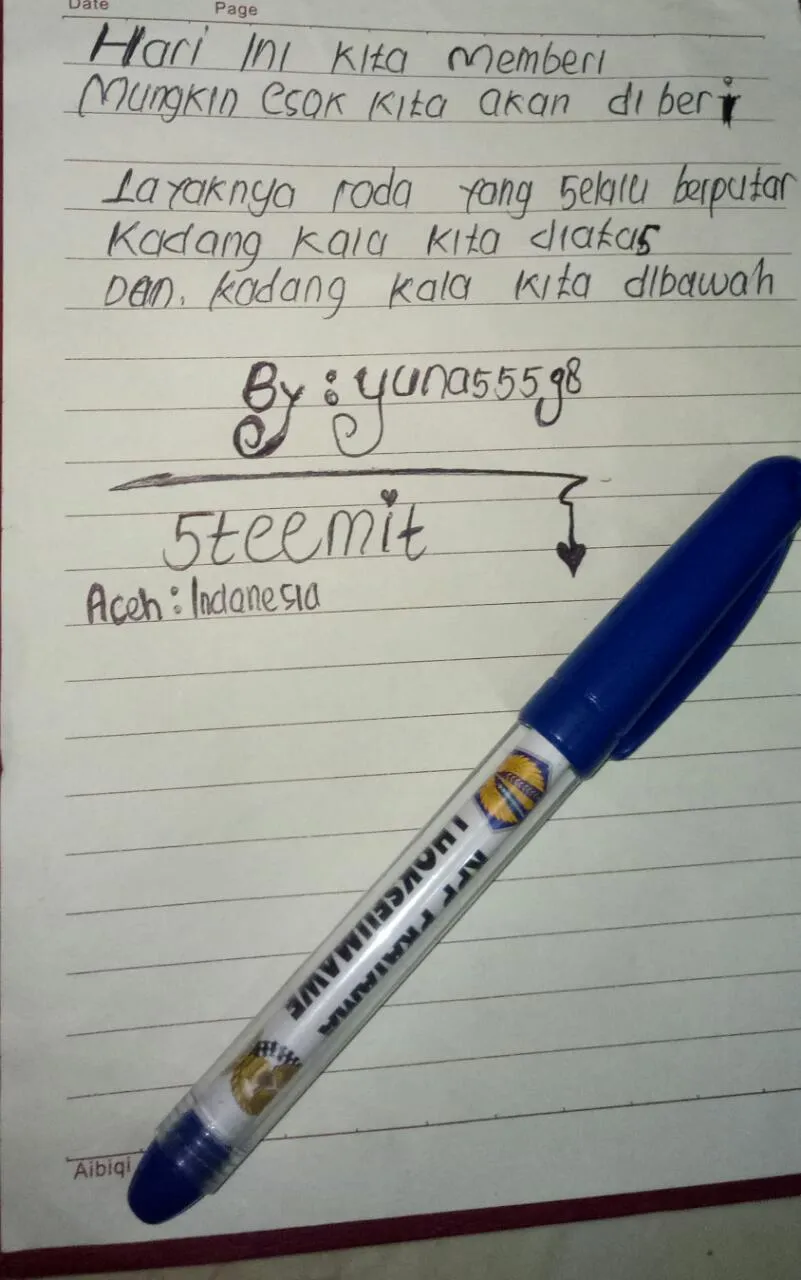 Date Page
Hari Ini Kita Memberi
Mungkin esok Kita akan di beri
Layaknya roda yang Selalu berputar
Kadang Kala Kita diatas
Dan. Kadang Kala Kita dibawah
By : yuna555g8
Steemit
Aceh : Indanesia
KPP PRATAMA
LHOKSEUMAWE
Aibiqi